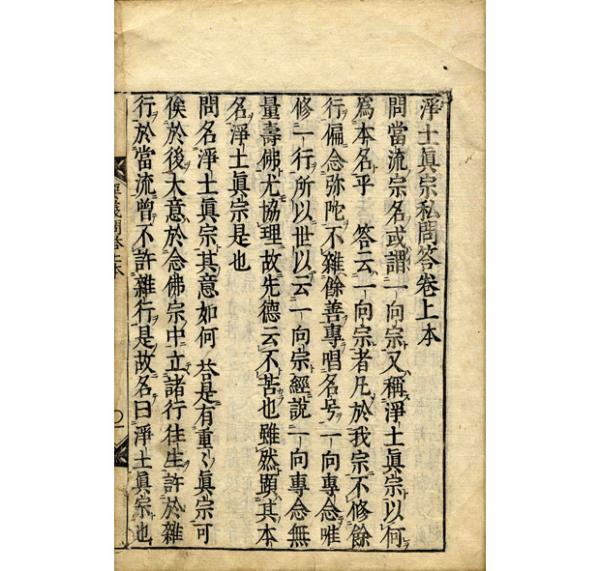 淨土眞宗私問答卷上本
問當流宗名或謂一向宗又稱淨土眞宗以何
爲本名乎 答云一向宗者凡於我宗不修餘
行偏念弥陀不雜餘善專唱名号一向專念唯
修一行所以世以云一向宗經說一向專念無
量壽佛尤協理故先德云不苦也雖然顕其本
名淨土眞宗是也
問名淨土眞宗其意如何 荅是有重〻眞宗可
俟於後大意於念佛宗中立諸行徃生許於雜
行於當流曽不許雜行是故名曰淨土眞宗也
問答上本